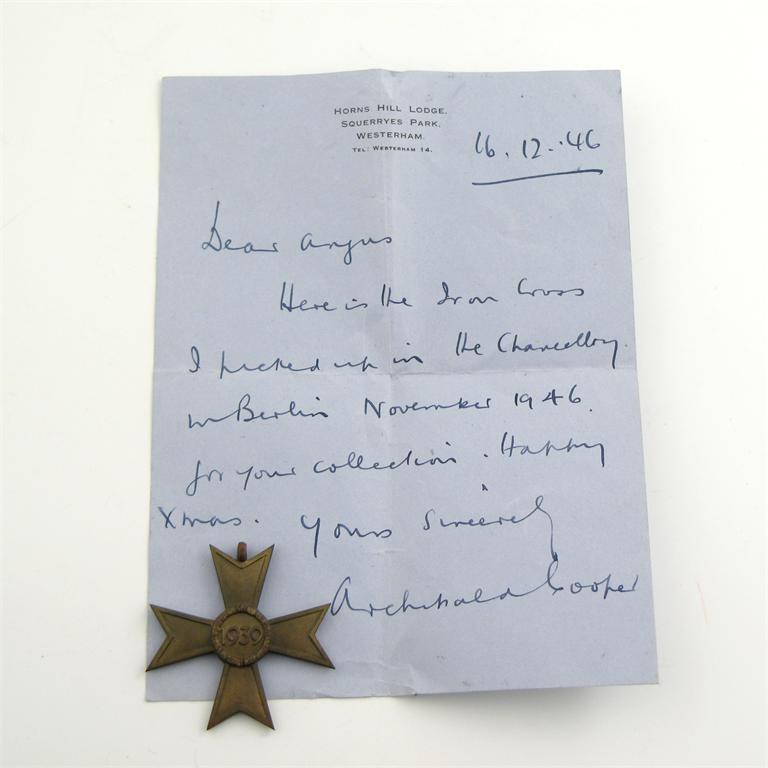 HORNS HILL LODGE,
SQUERRYES PARK,
WESTERHAM.
TEL: WESTERHAM 14.
16.12.'46
Dear Angus
Here is the Iron Cross
I picked up in the Chancellory
in Berlin November 1946.
for your collection. Happy
Xmas. Yours sincerely
Archibald Cooper
1939